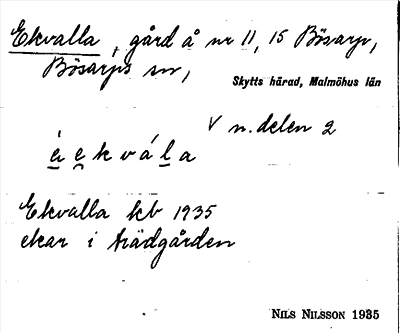 Ekvalla, gård å nr 11, 15 Bösarp,
Bösarps sn,
Skytts härad, Malmöhus län
V n. delen 2
è e k v á l a
Ekvalla kb 1935
ekar i trädgården
NILS NILSSON 1935